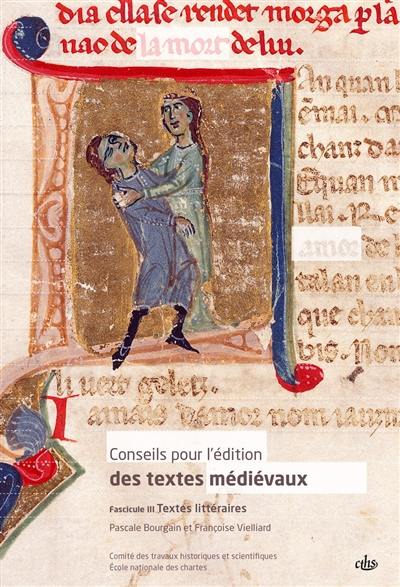 dia ellase rendet morga ꝑ la
nao de la mort de lui.
An quan
chanz da
Equan
llai.
amor de
talan en
que chan
Non
amais damor nom
Conseils pour l'édition
des textes médiévaux
Fascicule III Textes littéraires
Pascale Bourgain et Françoise Vielliard
Comité des travaux historiques et scientifiques
École nationale des chartes
cths